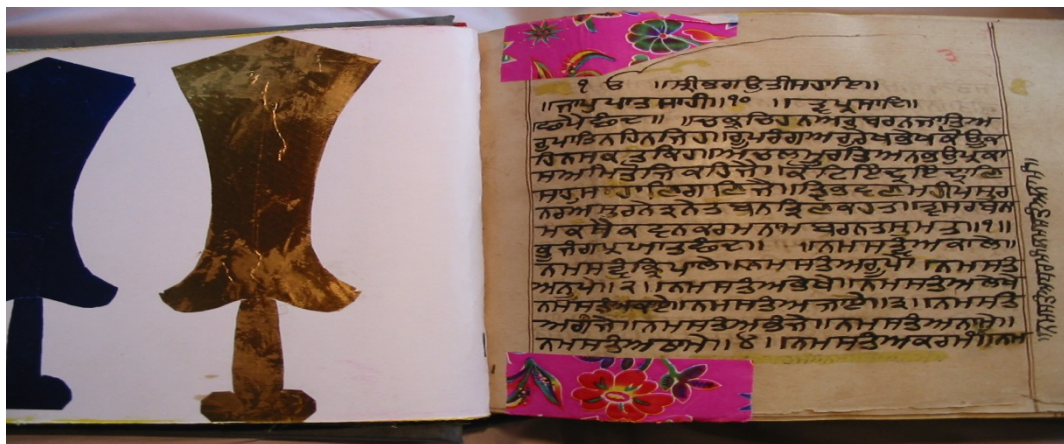 ੧ ਓ ॥ਸ੍ਰੀ ਭਗਉਤੀ ਸਹਾਇ॥
॥ਜਾਪੁ ਪਾਤਸਾਹੀ॥੧੦ ॥ਤ੍ਵਪ੍ਰਸਾਦਿ॥
ਛਪੈ ਛੰਦ॥ ॥ਚਕ੍ਰ ਚਿਹਨ ਅਰੁ ਬਰਨ ਜਾਤਿ ਅ
ਰੁ ਪਾਤਿ ਨਹਿਨ ਜਿਹ॥ਰੂਪ ਰੰਗ ਅਰੁ ਰੇਖ ਭੇਖ ਕੋਊ ਕ
ਹਿ ਨ ਸਕਤ ਕਿਹ॥ਅਚਲ ਮੂਰਤਿ ਅਨਭਉ ਪ੍ਰਕਾ
ਸ ਅਮਿਤੋਜ ਕਹਿਜੈ॥ਕੋਟਿ ਇੰਦ੍ਰ ਇੰਦ੍ਰਾਣਿ
ਸਾਹ ਸਾਹਾਣਿ ਗਣਿਜੈ॥ਤ੍ਰਿਭਵਣ ਮਹੀਪ ਸੁਰ
ਨਰ ਅਸੁਰ ਨੇਤ ਨੇਤ ਬਨ ਤ੍ਰਿਣ ਕਹਤ॥ਤ੍ਵ ਸਰਬ ਨਾ
ਮ ਕਥੈ ਕਵਨ ਕਰਮ ਨਾਮ ਬਰਨਤ ਸੁਮਤ॥੧॥
ਭੁਜੰਗ ਪ੍ਰਯਾਤ ਛੰਦ॥ ॥ਨਮਸਤ੍ਵੰ ਅਕਾਲੇ॥
ਨਮਸਤ੍ਵੰ ਕ੍ਰਿਪਾਲੇ॥ਨਮਸਤੰ ਅਰੂਪੇ॥ਨਮਸਤੰ
ਅਨੂਪੇ॥੨॥ਨਮਸਤੰ ਅਭੇਖੇ॥ਨਮਸਤੰ ਅਲੇਖੇ
ਨਮਸਤੰ ਅਕਾਏ॥ਨਮਸਤੰ ਅਜਾਏ॥੩॥ਨਮਸਤੰ
ਅਗੰਜੇ॥ਨਮਸਤੰ ਅਭੰਜੇ॥ਨਮਸਤੰ ਅਨਾਮੇ॥
ਨਮਸਤੰ ਅਠਾਮੇ॥੪॥ਨਮਸਤੰ ਅਕਰਮੰ॥ਨਮ